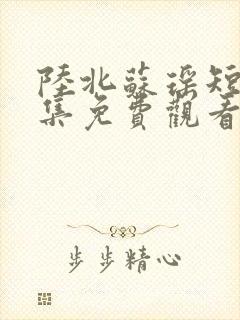 陸北蘇瑶短
集免費觀看
步步精心